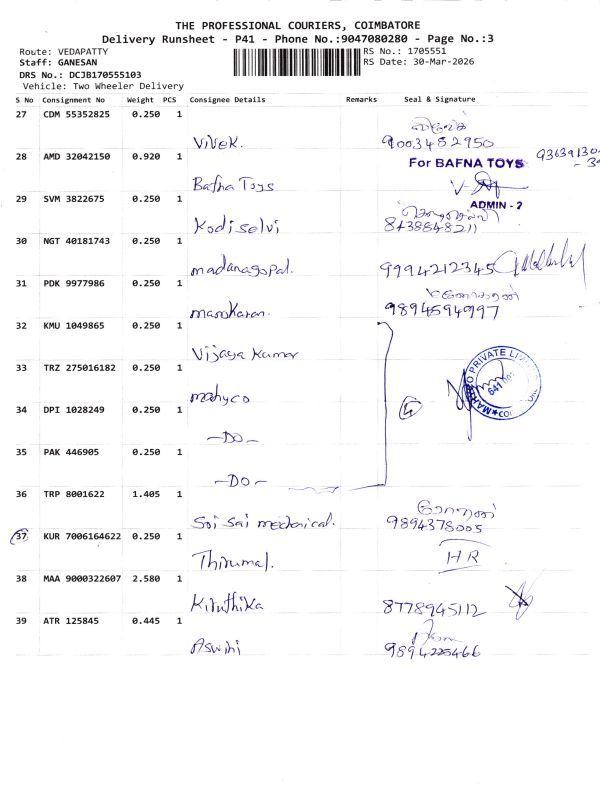 THE PROFESSIONAL COURIERS, COIMBATORE
Delivery Runsheet - P41 - Phone No.:9047080280 - Page No.:3
Route: VEDAPATTY
RS No.: 1705551
Staff: GANESAN
RS Date: 30-Mar-2026
DRS No.: DCJB170555103
Vehicle: Two Wheeler Delivery
S No Consignment No Weight PCS Consignee Details Remarks Seal & Signature
27 CDM 55352825 0.250 1
Vivek. 9003482950
28 AMD 32042150 0.920 1 For BAFNA TOYS
Bafna Toys
ADMIN - 2
29 SVM 3822675 0.250 1
Kodiselvi 8438848211
30 NGT 40181743 0.250 1
madanagopal. 9994212345
31 PDK 9977986 0.250 1
manoharan. 9894594997
32 KMU 1049865 0.250 1
Vijaya Kumar
33 TRZ 275016182 0.250 1
mahyco
34 DPI 1028249 0.250 1
4
-DO-
35 PAK 446905 0.250 1
-DO-
36 TRP 8001622 1.405 1
Sri Sai mechanical. 9894378005
37 KUR 7006164622 0.250 1
Thirumal. HR
38 MAA 9000322607 2.580 1
Kiruthika 8778945112
39 ATR 125845 0.445 1
Aswini 9894225466